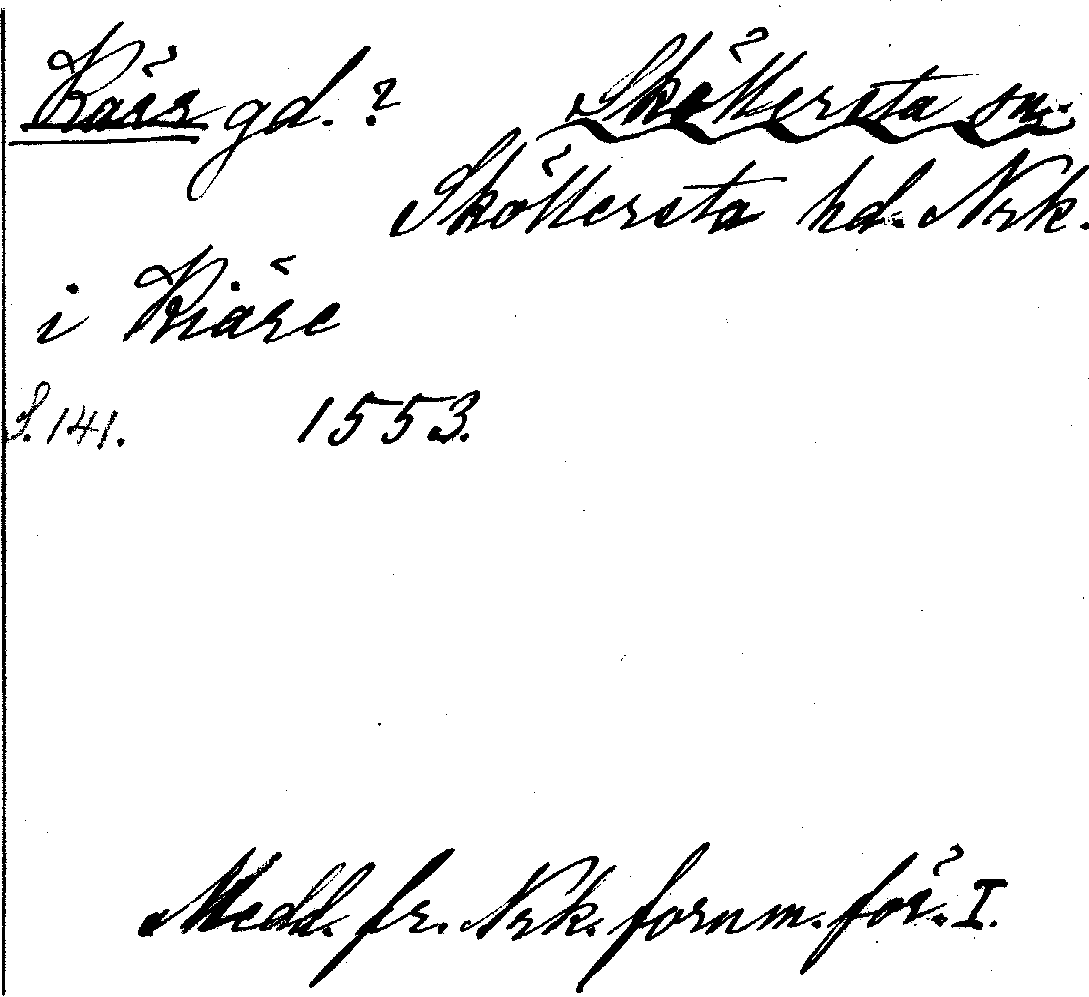 Kärr gd.? Sköllersta sn.
Sköllersta hd. Nrk.
i Kiäre
S. 141. 1553.
Medd. fr. Nrk. fornm. för. I.